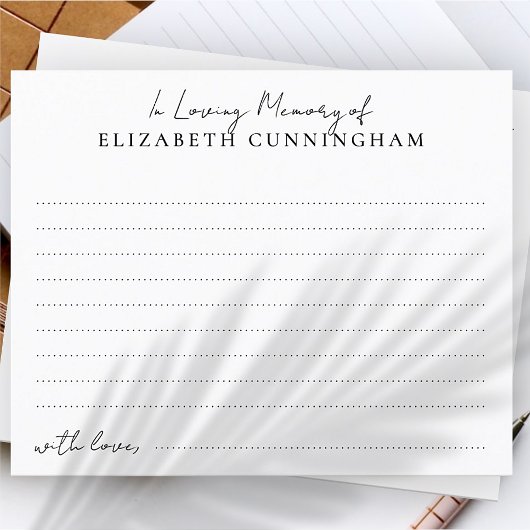 In Loving Memory of
ELIZABETH CUNNINGHAM
with love,